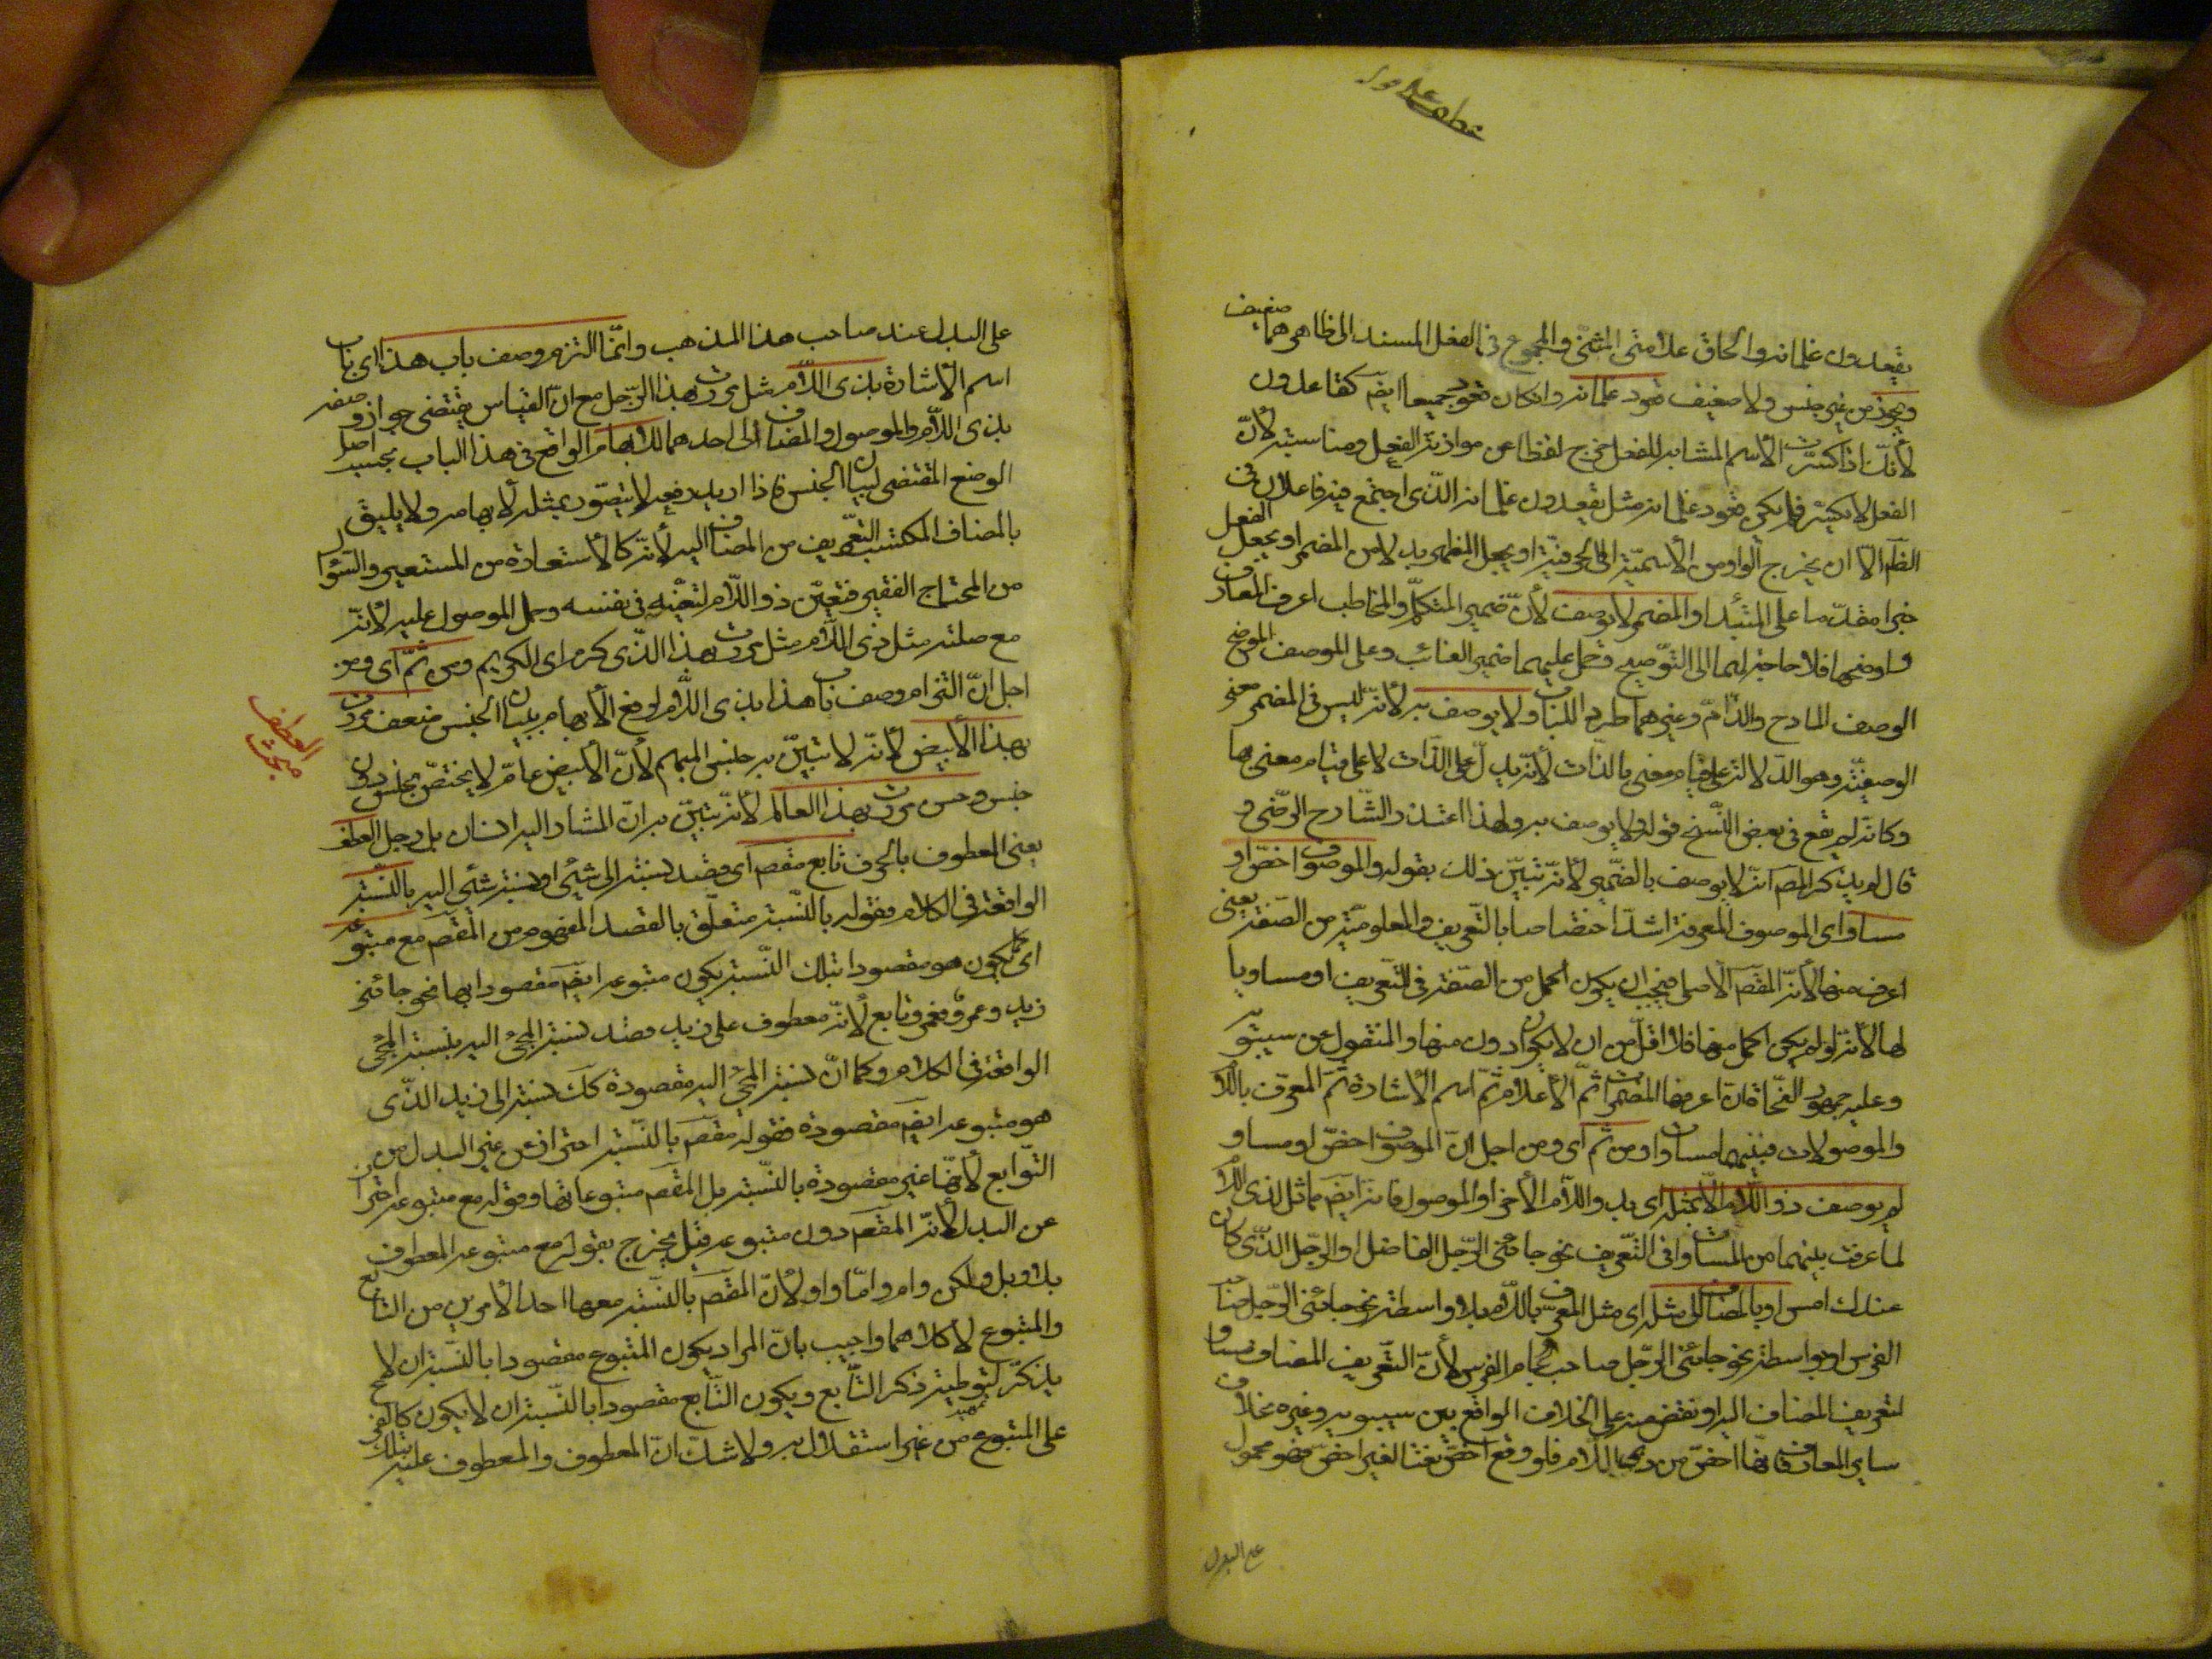 يقعدون غلمانه والحاق علامتى المثنّى والمجموع فى الفعل المسند الى ظاهرهما ضعيف
ويجوز من غير حسن ولا ضعيف قعود غلمانه وان كان قعود جمعا ايضَ كقاعدون
لأنّك اذا كسّرت الأسم المشابه للفعل خرج لفظا عن موازنة الفعل ومناسبته لأنّ
الفعل لا يكسّر فلم يكن قعود غلمانه مثل يقعدون غلمانه الذّى اجتمع فيه فاعلان فى
الظَّم الّا ان يخرج الواو من الأسميّة الى الحرفيّة او يجعل المظهر بدلا من المضمر او يجعل الفعل
خبرا مقدّما على المبتدأ والمضمر لا يوصف لأنّ ضمير المتكلّم والمخاطب اعرف المعارف
واوضحها فلا حاجة لهما الى التّوضيح وحمل عليهما ضمير الغائب وعلى الوصف الموضح
الوصف المادح والذّامّ وغيرهما طردا للباب ولا يوصف به لأنّه ليس فى المضمر معنى
الوصفيّة وهو الدّلالة على قيام معنى بالذّات لأنّه يدلّ على الذّات لا على قيام معنى بها
وكانّه لم يقع فى بعض النّسخ قوله ولا يوصف به ولهذا اعتذر الشّارح الرّضى و
قال لم يذكر المصَ انّه لا يوصف بالضّمير لأنّه تبيّن ذلك بقوله والموصوف اخصّ او
مساو اى الموصوف المعرفة اشدّ اختصاصا بالتّعريف والمعلوميّة من الصّفة يعنى
اعرف منها لأنّه المقصَ الأصلى فيجب ان يكون اكمل من الصّفة فى التّعريف او مساويا
لها لأنّه لو لم يكن اكمل منها فلا اقلّ من ان لا يكون ادون منها والمنقول عن سيبويه
وعليه جمهور النّحاة انّ اعرفها المضمرات ثمّ الأعلام ثمّ اسم الأشارة ثمّ المعرّف باللّام
والموصولات فبينهما مساواة ومن ثمّ اى ومن اجل انّ الموصوف اخصّ او مساو
لم يوصف ذو اللّام الّا بمثله اى بذو اللّام الأخر او الموصول فانّه ايضَ مماثل لذى اللّام
لما عرفت بينهما من المساواة فى التّعريف نحو جائنى الرّجل الفاضل او الرّجل الذّى كان
عندك امس او بالمضاف الى مثله اى مثل المعرّف باللّام بلا واسطة نحو جائنى الرّجل صاحب
الفرس او بواسطة نحو جائنى الرّجل صاحب لجام الفرس لأنّ التّعريف المضاف مساو
لتعريف المضاف اليه او نقض منه على الخلاف الواقع بين سيبويه وغيره بخلاف
ساير المعارف فانّها اخصّ من ذى اللّام فلو وقع اخصّ نعتا لغير اخصّ فهو محمول
على البدل
على البدل عند صاحب هذا المذهب وانّما التزم وصف باب هذا اى باب
اسم الأشارة بذى اللّام مثل مررت بهذا الرّجل مع انّ القياس يقتضى جواز وصفه
بذى اللّام والموصول والمضاف الى احدهما للأبهام الواقع فى هذا الباب بحسب اصل
الوضع المقتضى لبيان الجنس فاذا اريد رفعه لا يتصوّر بمثله لأبهامه ولا يليق
بالمضاف المكتسب التّعريف من المضاف اليه لأنّه كالأستعارة من المستعير والسّؤال
من المحتاج الفقير فتعيّن ذو اللّام لتعيّنه فى نفسه وحمل الموصول عليه لأنّه
مع صلته مثل ذى اللّام مثل مررت بهذا الذّى كرم اى الكريم ومن ثمّ اى ومن
اجل انّ التزام وصف باب هذا بذى اللّام لرفع الأبهام ببيان الجنس ضعف مررت
بهذا الأبيض لأنّه لا يتبيّن به جنس المبهم لأنّ الأبيض عامّ لا يختصّ بجنس دون
جنس وحسن مررت بهذا العالم لأنّه تبيّن به انّ المشار اليه انسان بل رجل العطف
مبحث العطف
يعنى المعطوف بالحرف تابع مقصَ اى قصد نسبته الى شئ او نسبة شئ اليه بالنّسبة
الواقعة فى الكلام فقوله بالنّسبة متعلّق بالقصد المفهوم من المقصَ مع متبوعه
اى كما يكون هو مقصودا بتلك النّسبة يكون متبوعه ايضَ مقصودا بها نحو جائنى
زيد وعمرو فعمرو تابع لأنّه معطوف على زيد قصد نسبة المجئ اليه بنسبة المجئ
الواقعة فى الكلام وكما انّ نسبة المجئ اليه مقصودة كذَلك نسبته الى زيد الذّى
هو متبوعه ايضَ مقصودة فقوله مقصَ بالنّسبة احتراز عن غير البدل من
التّوابع لأنّها غير مقصودة بالنّسبة بل المقصَ متبوعاتها وقوله مع متبوعه احتراز
عن البدل لأنّه المقصَ دون متبوعه قيل يخرج بقوله مع متبوعه المعطوف
بلا وبل ولكن وام وامّا واو لأنّ المقصَ بالنّسبة معها احد الأمرين من التّابع
والمتبوع لا كلاهما واجيب بانّ المراد بكون المتبوع مقصودا بالنّسبة ان لا
يذكر لتوطية ذكر التّابع وبكون التّابع مقصودا بالنّسبة ان لا يكون كالفرع
على المتبوع من غير استقلال به ولا شكّ انّ المعطوف والمعطوف عليه بتلك